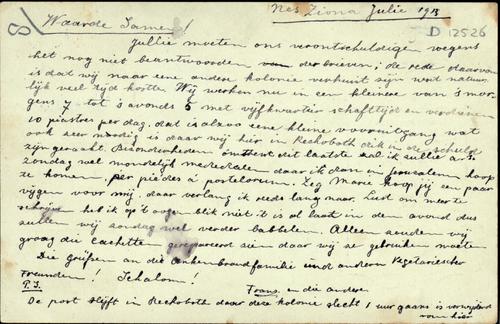 8)
Nes Ziona Julie 1913
D 12526
Waarde Samen!
Jullie moeten ons verontschuldigen wegens
het nog niet beantwoorden der brieven; de rede daarvan
is dat wij naar eene andere kolonie verhuist zijn wat natuur-
lijk veel tijd kostte. Wij werken nu in een kleine van 's mor-
gens 7 tot 's avonds 6 met vijfkwartier schafttijd en verdienen
10 piasters per dag. dat is alzoo eene kleine vooruitgang wat
ook zeer noodig is daar wij hier in Rechoboth dik in de schuld
zijn geraakt. Bizonderheden omtrent dit laatste zal ik jullie a.s.
zondag wel mondelijk mededeelen daar ik dan in Jerusalem hoop
te komen, per piedes a portelorum. Zeg Marie koop jij een paar
vijgen voor mij, daar verlang ik reeds lang naar. Lust om meer te
schrijven heb ik op 't oogenblik niet it is al laat in den avond dus
zullen wij zondag wel verder babbelen. Alleen zouden wij
graag die cachette gerepareerd zien daar wij ze gebruiken moeten
Die grüßen an die Ankenbrandfamilie und andern Vegetarischer
Freunden! Schalom! Frans. en die andere
P.S.
De post blijft in Rechoboth daar deze kolonie slecht 1 uur gaans is verwijderd
van hier